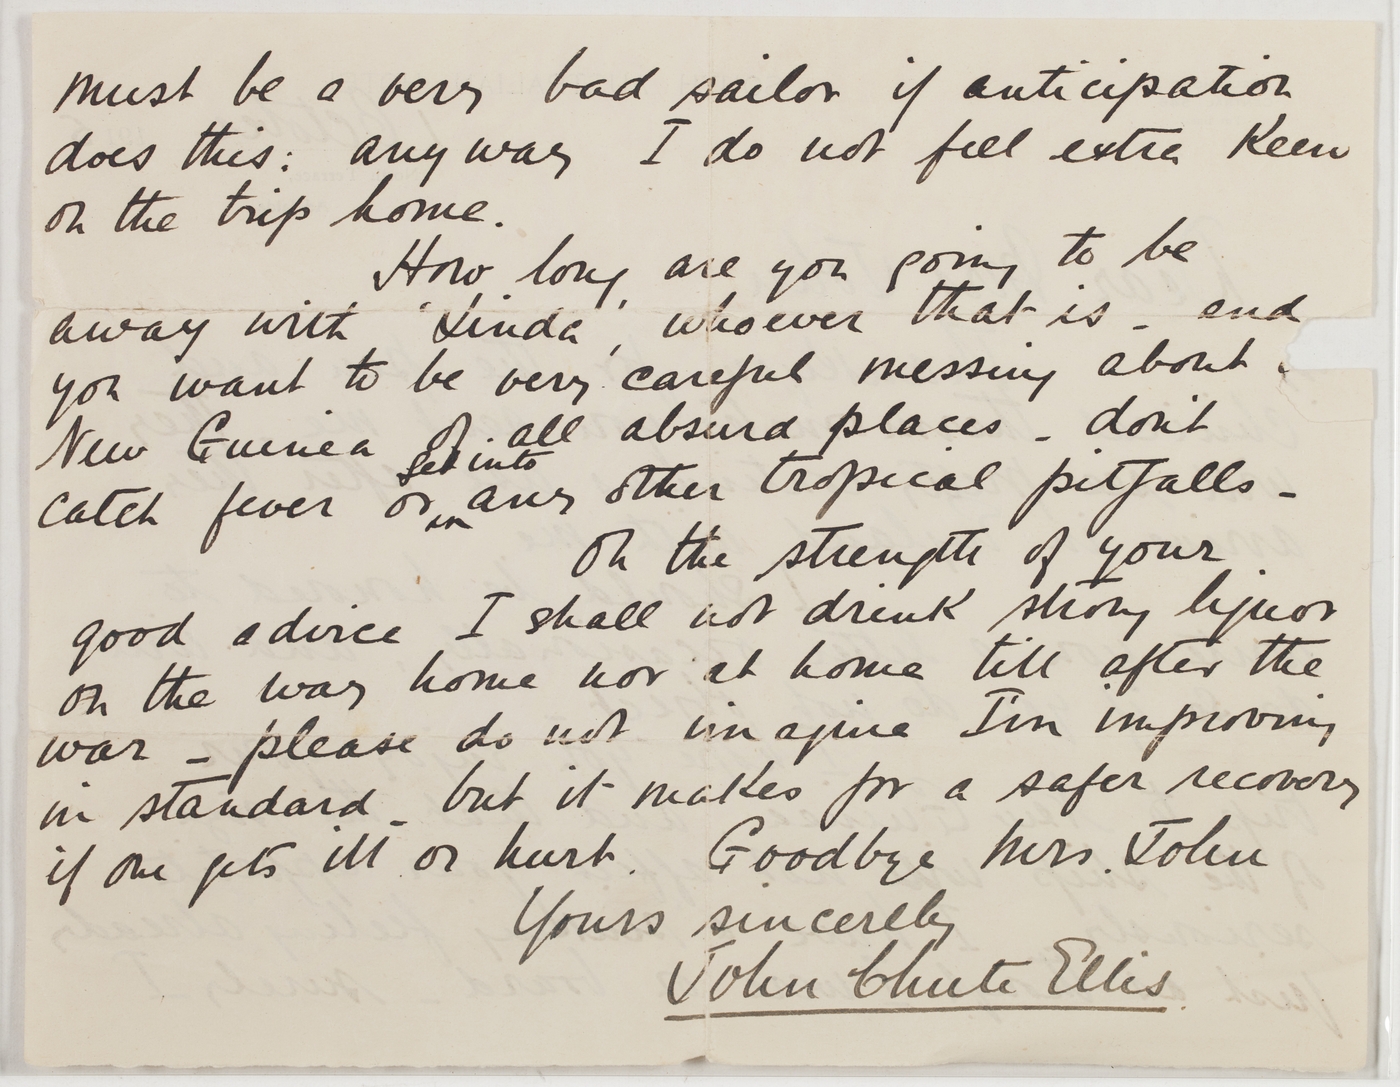 must be a very bad sailor if anticipation
does this: anyway I do not feel extra keen
on the trip home.
How long are you going to be
away with 'Linda', whoever that is - and
you want to be very careful messing about
New Guinea of all absurd places - don't
get into
catch fever or in any other tropical pitfalls -
On the strength of your
good advice I shall not drink strong liquor
on the way home nor at home till after the
war - please do not imagine I'm improving
in standard - but it makes for a safer recovery
if one gets ill or hurt. Goodbye Mrs. John
Yours sincerely
John Chute Ellis.